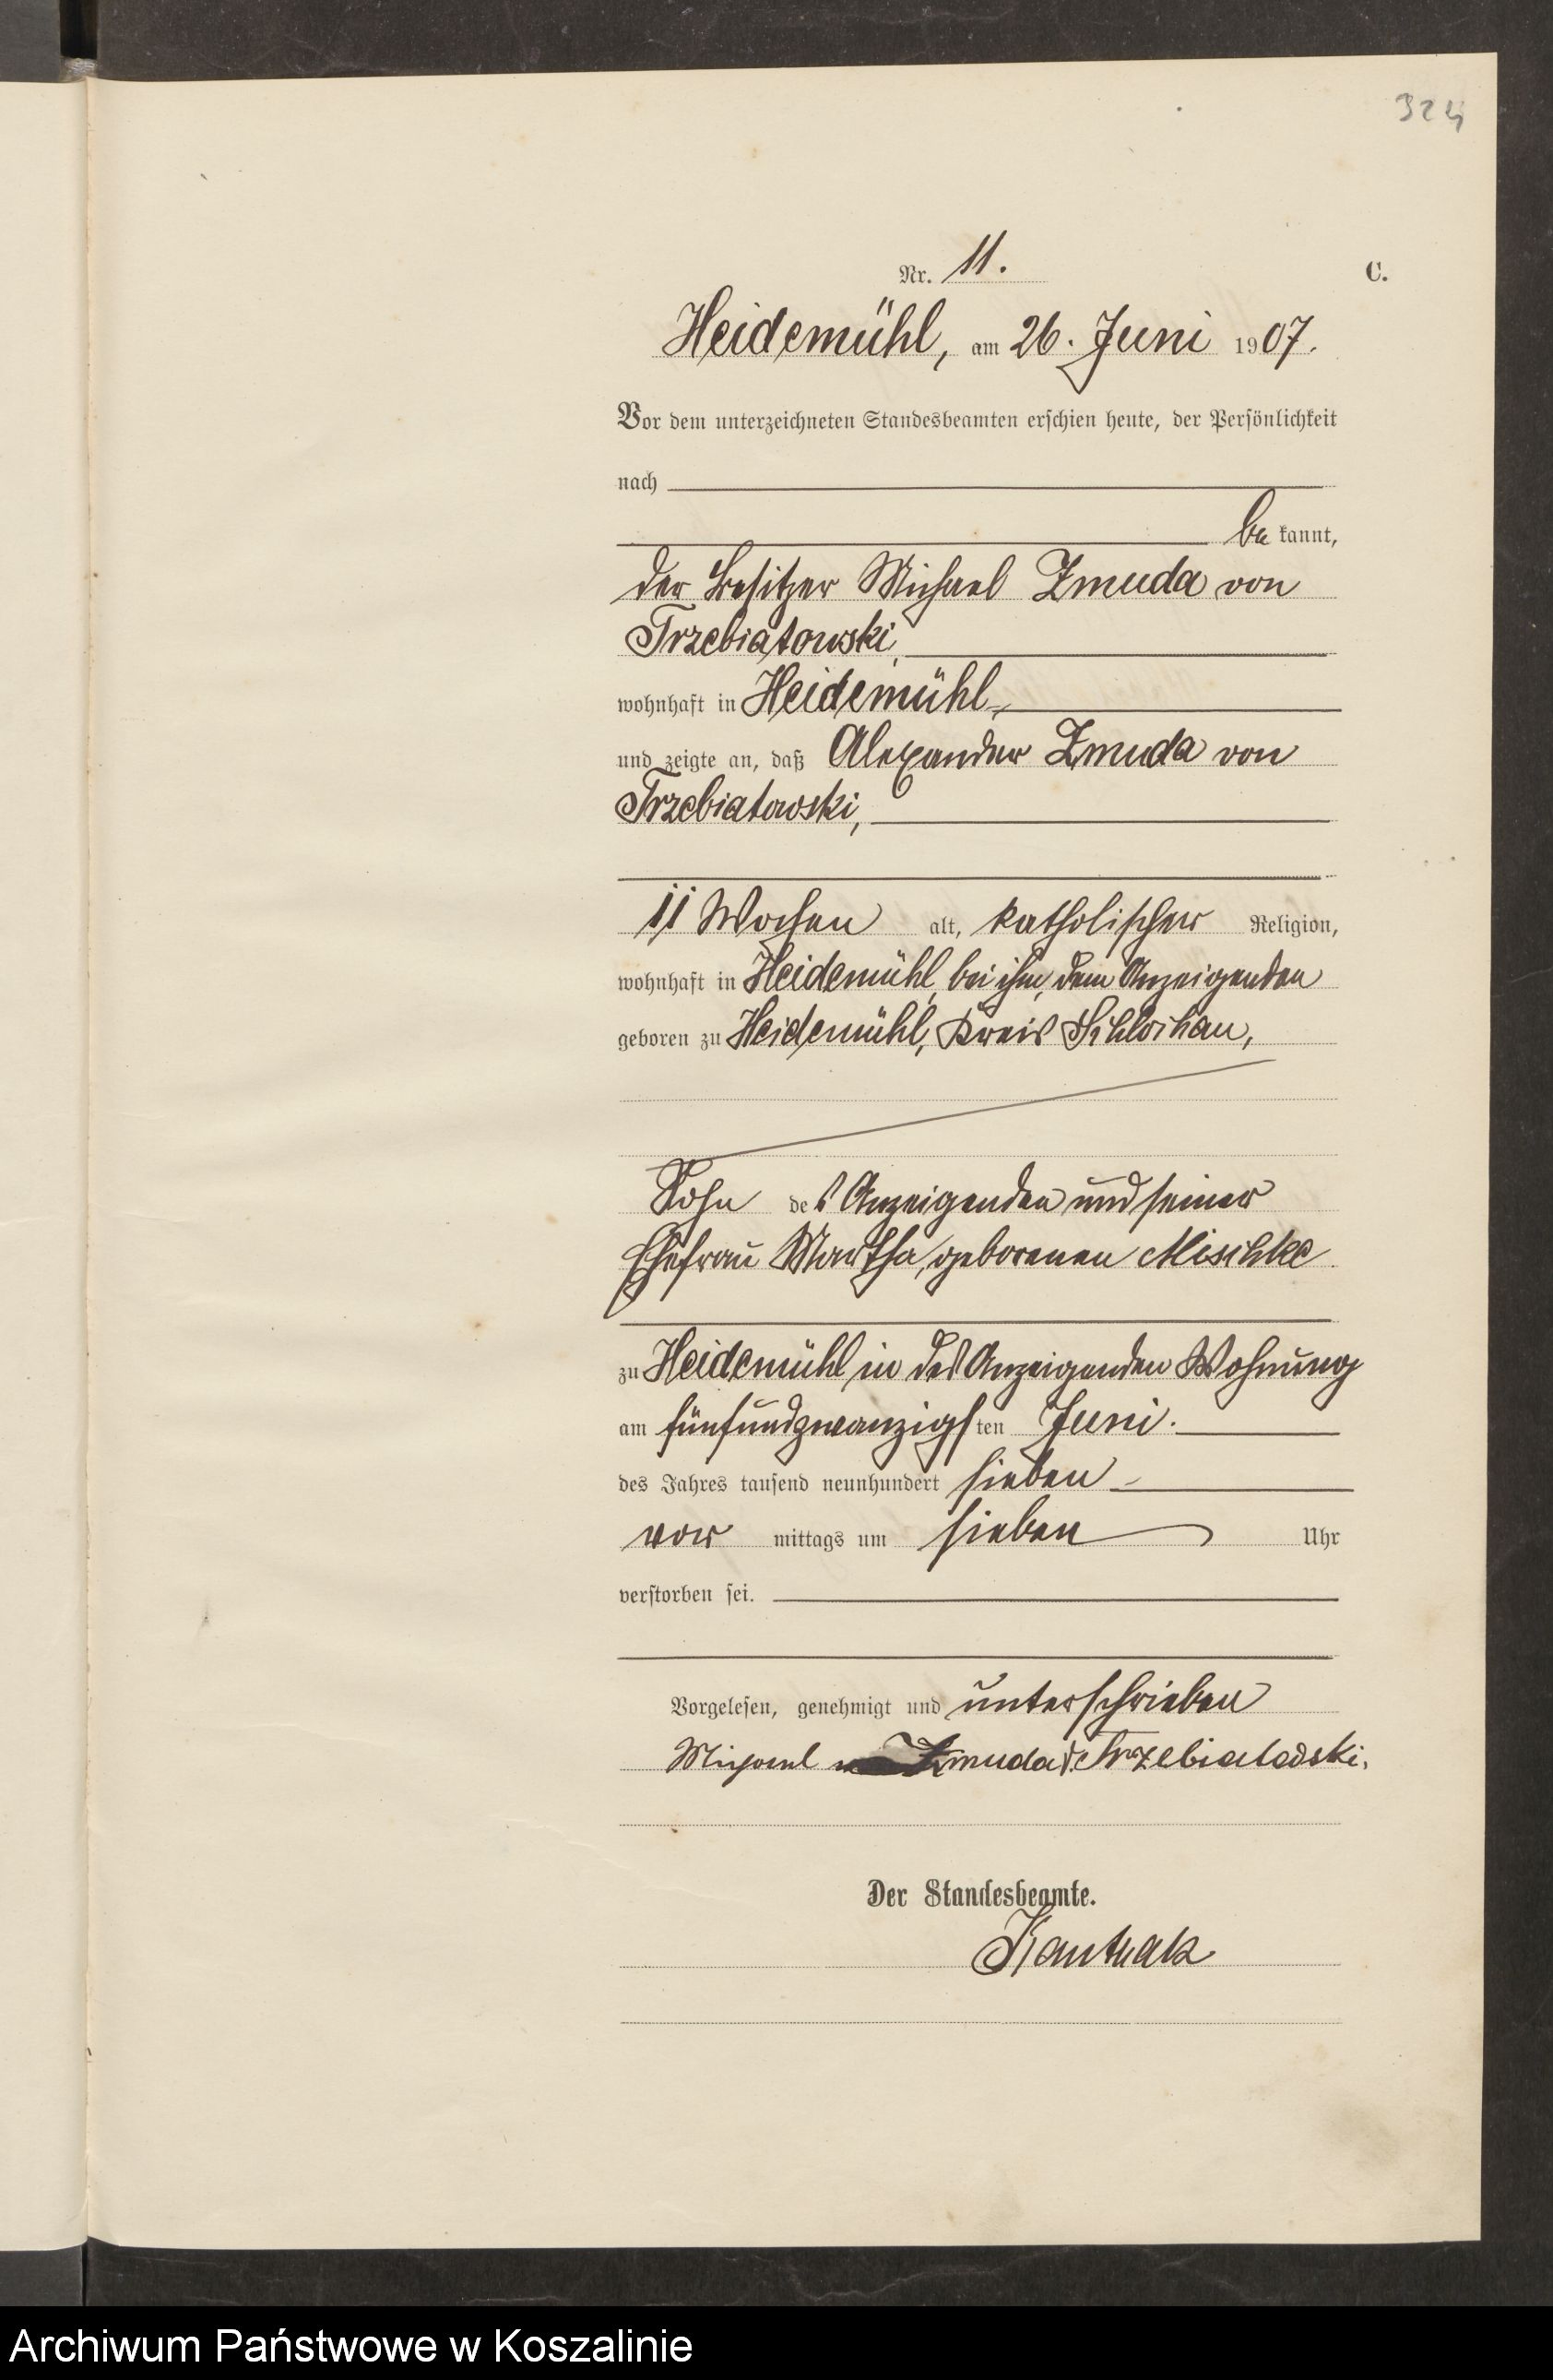 324
Nr. 11.
C.
Heidemühl, am 26. Juni 1907.
Vor dem unterzeichneten Standesbeamten erschien heute, der Persönlichkeit
nach
be kannt,
der Besitzer Michael Zmuda von
Trzebiatowski,
wohnhaft in Heidemühl,
und zeigte an, daß Alexander Zmuda von
Trzebiatowski,
11 Wochen alt, katholischer Religion,
wohnhaft in Heidemühl, bei ihm, dem Anzeigenden
geboren zu Heidemühl, Kreis Schlochau,
Sohn des Anzeigenden und seiner
Ehefrau Martha, geborenen Mischke
zu Heidemühl in des Anzeigenden Wohnung
am fünfundzwanzigsten Juni.
des Jahres tausend neunhundert sieben
vor mittags um sieben Uhr
verstorben sei.
Vorgelesen, genehmigt und unterschrieben
Michael Zmuda v. Trzebiatowski.
Der Standesbeamte.
Kanthak
Archiwum Państwowe w Koszalinie